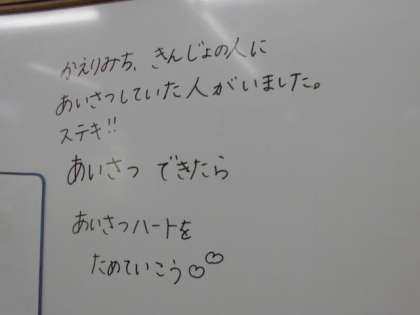 かえりみち、きんじょの人に
あいさつしていた人がいました。
ステキ!!
あいさつ できたら
あいさつハートを
ためていこう♡♡